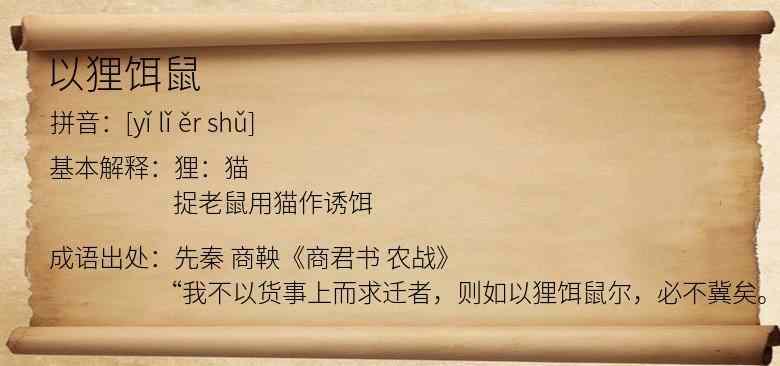 以狸饵鼠
拼音：[yǐ lǐ ěr shǔ]
基本解释：狸：猫
捉老鼠用猫作诱饵
成语出处：先秦 商鞅《商君书 农战》
“我不以货事上而求迁者，则如以狸饵鼠尔，必不冀矣。